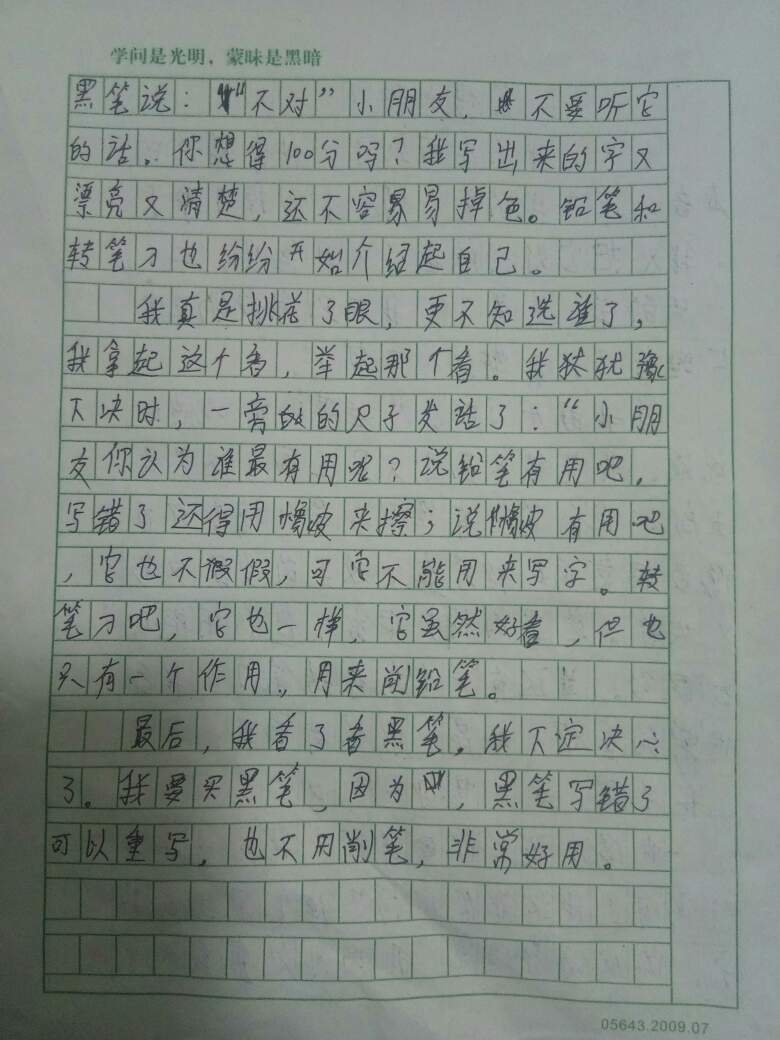 学问是光明，蒙昧是黑暗
黑笔说：“不对”小朋友，不要听它
的话。你想得100分吗？我写出来的字又
漂亮又清楚，还不容易易掉色。铅笔和
转笔刀也纷纷开始介绍起自己。
我真是挑花了眼，更不知选谁了，
我拿起这个看，举起那个看。我犹犹豫
不决时，一旁的的尺子发话了：“小朋
友你认为谁最有用呢？说铅笔有用吧，
写错了还得用橡皮来擦；说橡皮有用吧
，它也不假假，可它不能用来写字。转
笔刀吧，它也一样，它虽然好看，但也
只有一个作用，用来削铅笔。
最后，我看了看黑笔。我下定决心
了。我要买黑笔，因为，黑笔写错了
可以重写，也不用削笔，非常好用。
05643.2009.07